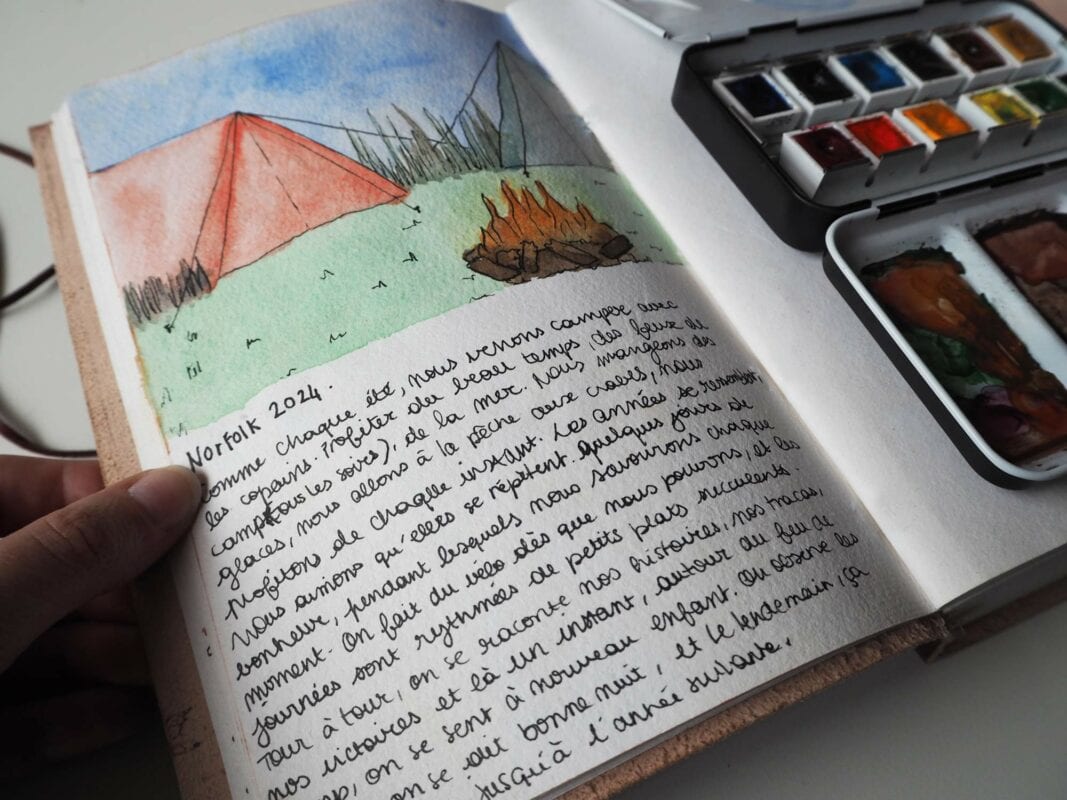 Norfolk 2024.
Comme chaque été, nous venons camper avec
les copains. Profiter du beau temps, des feux de
camp (tous les soirs), de la mer. Nous mangeons des
glaces, nous allons à la pêche aux crabes, nous
profitons de chaque instant. Les années se ressemblent,
nous aimons qu'elles se répètent. quelques jours de
bonheur, pendant lesquels nous savourons chaque
moment. On fait du vélo dès que nous pouvons, et les
journées sont rythmées de petits plats succulents.
Tour à tour, on se raconte nos histoires, nos tracas,
nos victoires et là un instant, autour du feu de
on se sent à nouveau enfant. On observe les
on se dit bonne nuit, et le lendemain ça
jusqu'à l'année suivante.